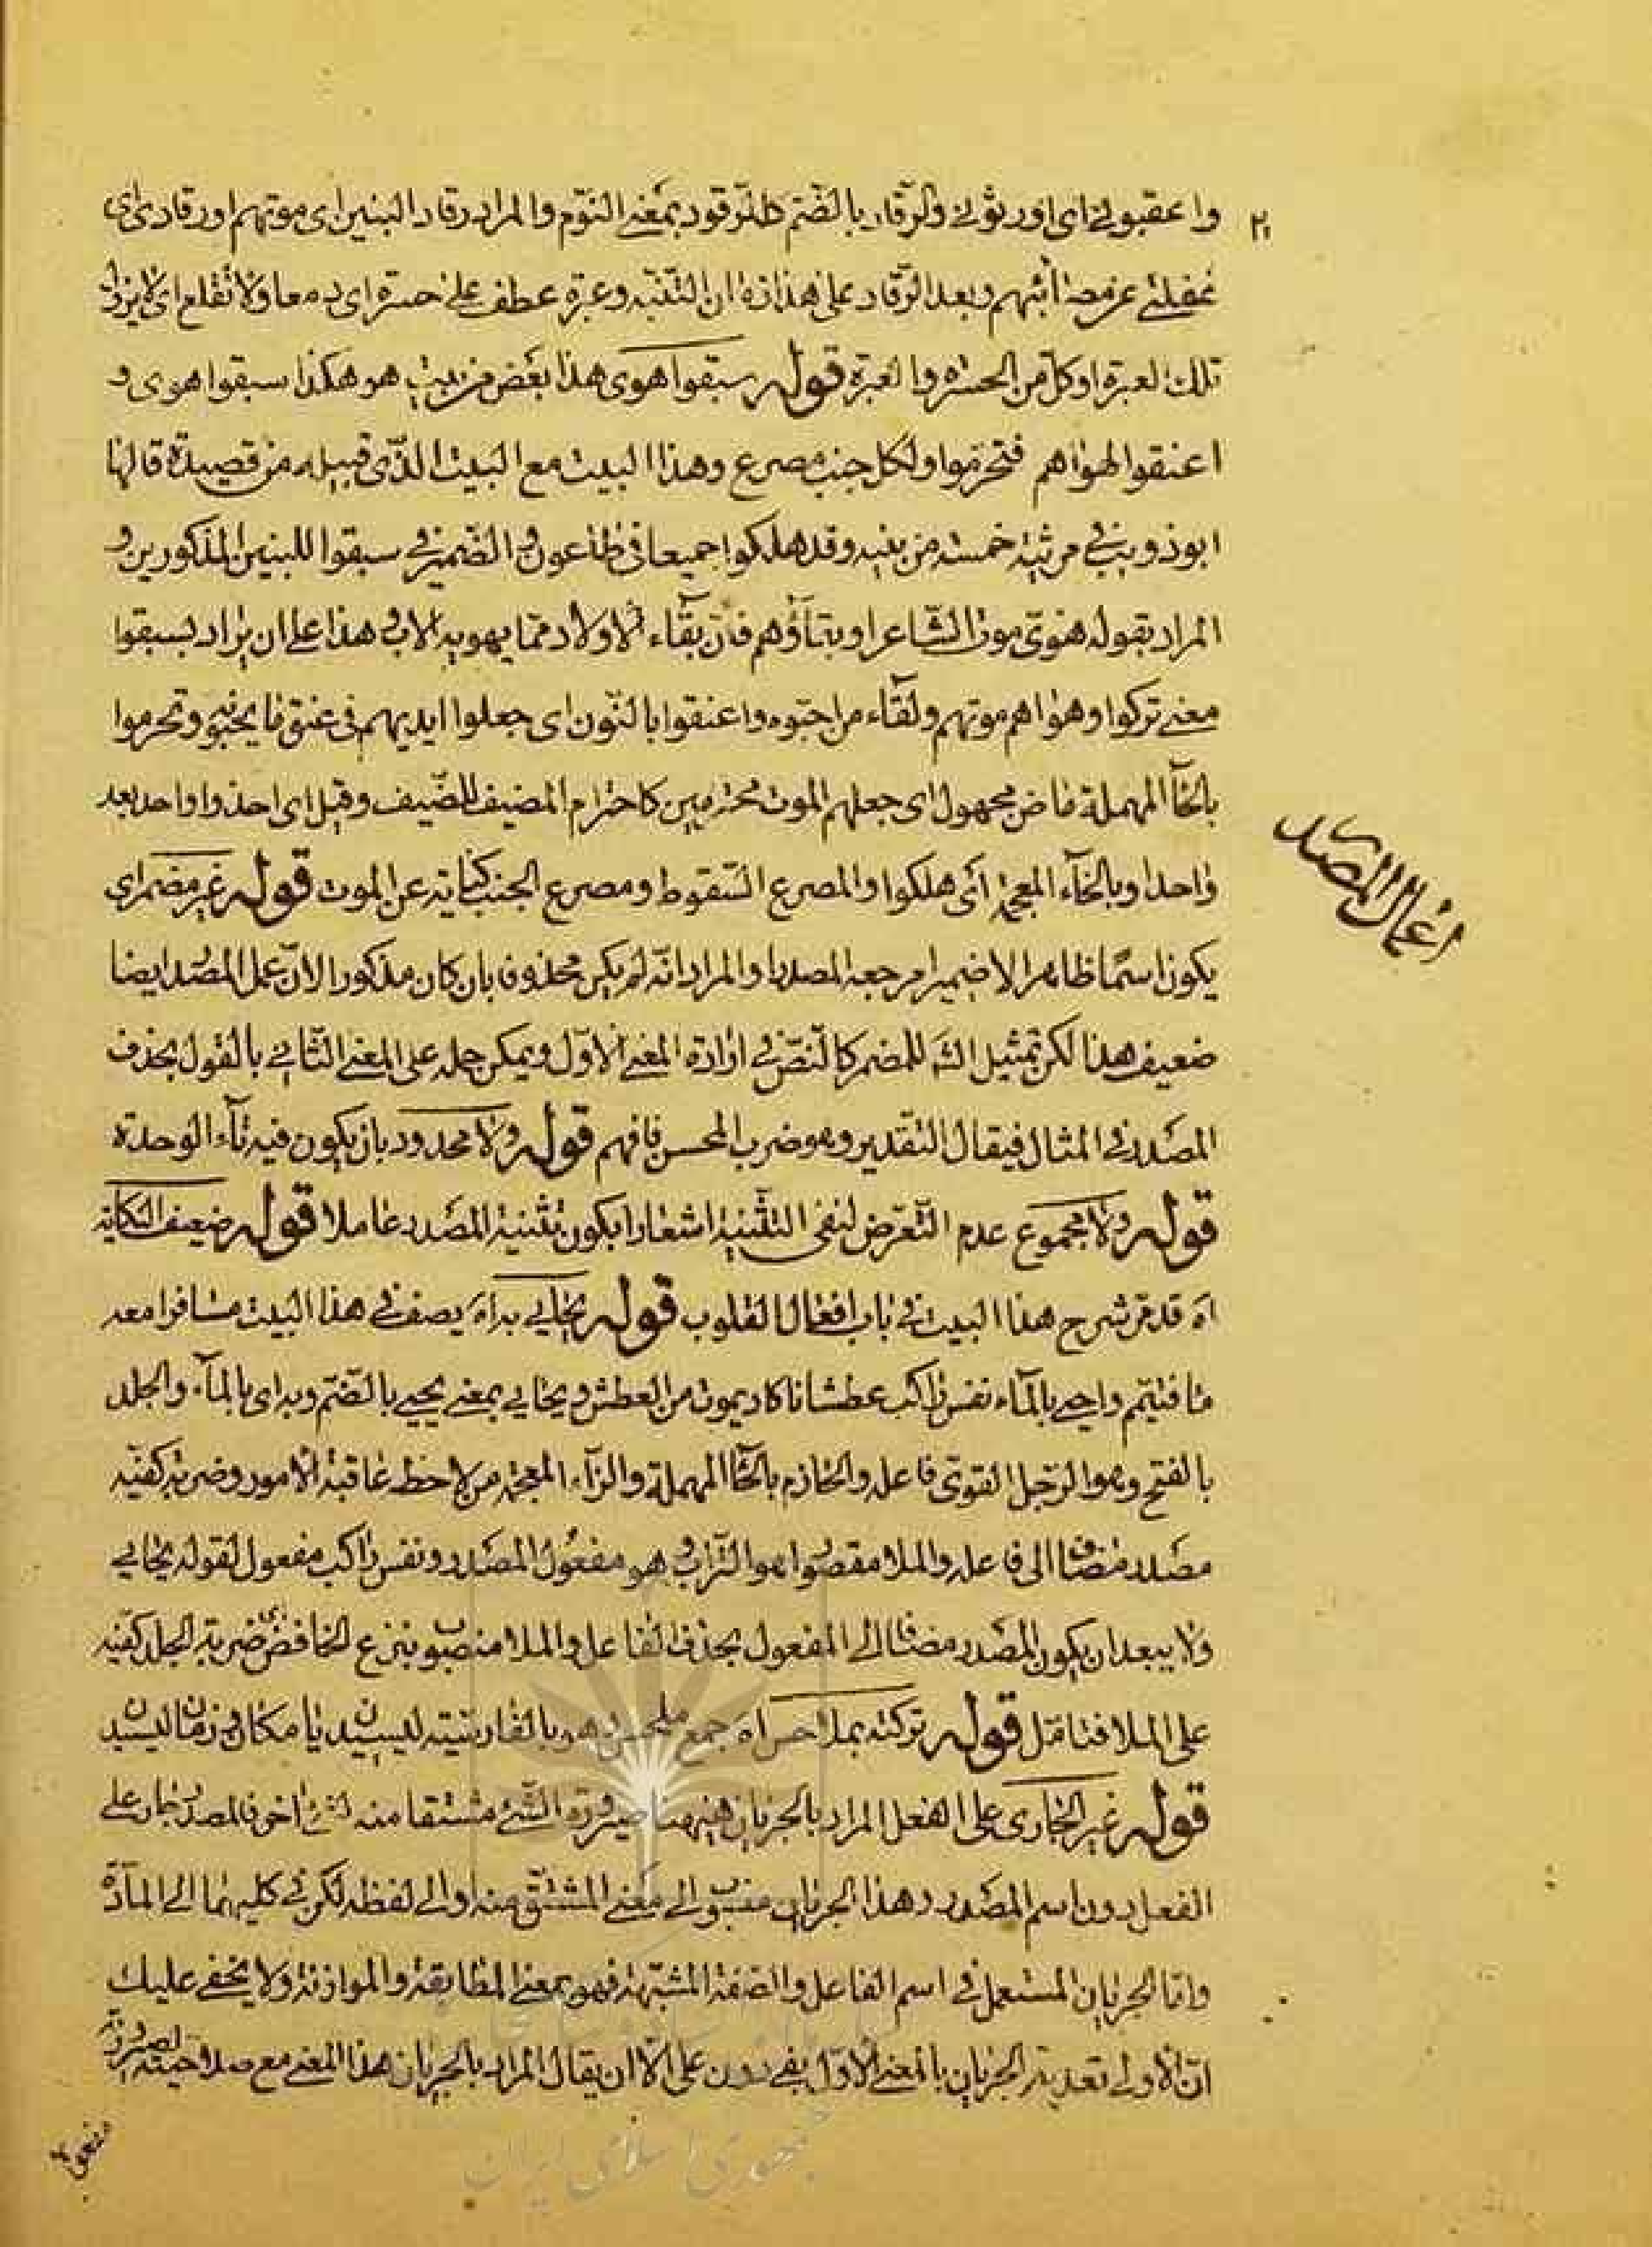 واعقبوني اى اورثوني والرقاد بالضم كالرقود بمعنى النوم والمراد رقاد البنين اى موتهم او رقادى اى
غفلتي عن مصائبهم وبعد الرقاد على هذا زمان التنبه وعبرة عطف على حسرة اى دمعا ولا تقلع اى لا يزول
تلك العبرة او كل من الحسرة والعبرة قوله سبقوا هوى هذا بعض من بيت هو هكذا سبقوا هوى و
اعنقوا لهواهم فتخرموا ولكل جنب مصرع وهذا البيت مع البيت الذى قبيله من قصيدة قالها
ابو ذويب في مرثية خمسة من بنيه وقد هلكوا جميعا في طاعون والضمير في سبقوا للبنين المذكورين و
المراد بقوله هوى موت الشاعر او بقاؤهم فان بقاء الاولاد مما يهويه الاب هذا على ان يراد بسبقوا
معنى تركوا وهواهم موتهم ولقاء من احبوه واعنقوا بالنون اى جعلوا ايديهم في عنق ما يحبه وتحرموا
بالحاء المهملة ماض مجهول اى جعلهم الموت محترمين كاحترام المضيف للضيف وقيل اى اخذوا واحد بعد
واحد او بالخاء المعجمة اى هلكوا والمصرع السقوط ومصرع الجنب كناية عن الموت قوله غير مضمر اى
يكون اسما ظاهرا لا ضميرا مرجعه المصدر او المراد انه لم يكن محذوفا بان كان مذكورا لان عمل المصدر ايضا
ضعيف هذا لكن تمثيل الش للمضمر كالنص في ارادة المعنى الاول ويمكن حمله على المعنى الثاني بالقول بحذف
المصدر في المثال فيقال التقدير وهو ضرب المحسن فافهم قوله ولا محدود بان يكون فيه تاء الوحدة
قوله ولا مجموع عدم التعرض لنفى التثنية اشعارا بكون تثنية المصدر عاملا قوله ضعيف النكاية
اه قد مر شرح هذا البيت في باب افعال القلوب قوله يحايي به اه يصف في هذا البيت مسافرا معه
ما فتيمم واحيى بالماء نفس راكب عطشانا كاد يموت من العطش ويحايي بمعنى يحيي بالضم وبه اى بالماء والجلد
بالفتح وهو الرجل القوى فاعله والحازم بالحاء المهملة والزاء المعجمة من لاحظ عاقبة الامور وضربة كفيه
مصدر مضاف الى فاعله والملا مقصورا هو التراب وهو مفعول المصدر ونفس راكب مفعول لقوله يحايي
ولا يبعد ان يكون المصدر مضافا الى المفعول بحذف الفاعل والملا منصوب بنزع الخافض اى ضربة الجلد كفيه
على الملا فتامل قوله تركته بملاحس اه جمع ملحس وهو بالفارسية ليسيدن يا مكان وزمان ليسيدن
قوله غير الجارى على الفعل المراد بالجريان هيهنا صيرورة الشئ مشتقا منه لشئ اخر فالمصدر جار على
الفعل دون اسم المصدر وهذا الجريان منسوب الى معنى المشتق منه او الى لفظه لكن في كليهما الى المادة
واما الجريان المستعمل في اسم الفاعل والصفة المشبهة فهو بمعنى المطابقة والموازنة ولا يخفى عليك
ان الاولى تعدية الجريان بالمعنى الاول بفى دون على الا ان يقال المراد بالجريان هذا المعنى مع صلاحية الصيرورة
اعمال المصدر